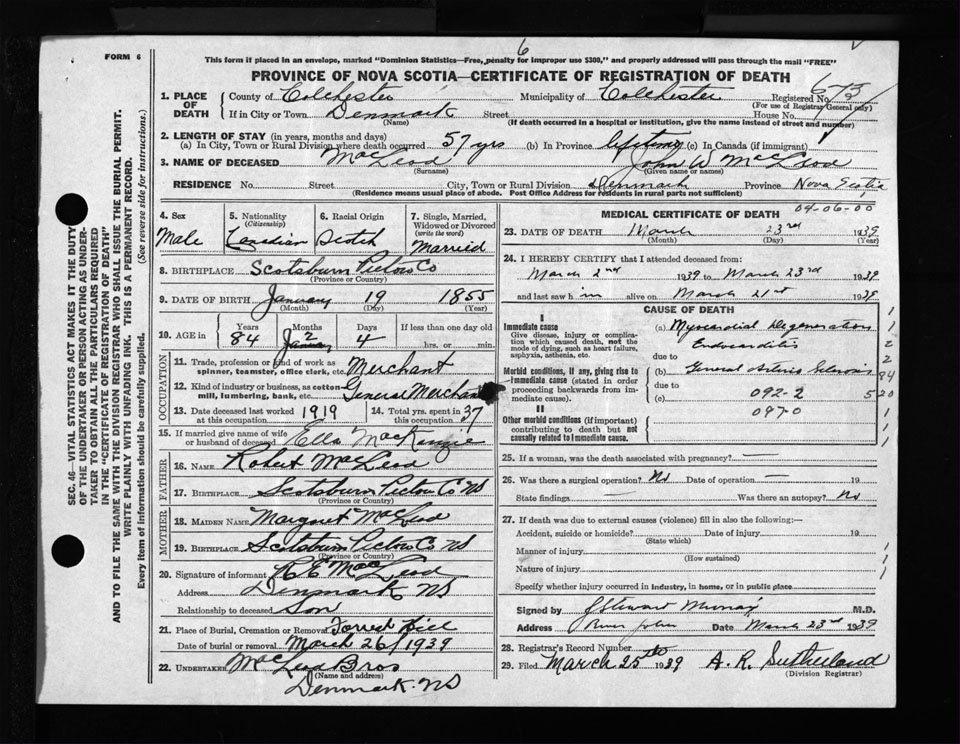 6
This form if placed in an envelope, marked "Dominion Statistics—Free, penalty for improper use $300," and properly addressed will pass through the mail "FREE"
FORM 6
PROVINCE OF NOVA SCOTIA—CERTIFICATE OF REGISTRATION OF DEATH
1. PLACE OF DEATH
County of Colchester Municipality of Colchester Registered No. 673
(For use of Registrar General only)
If in City or Town Denmark Street House No.
(Name) (If death occurred in a hospital or institution, give the name instead of street and number)
2. LENGTH OF STAY (in years, months and days)
(a) In City, Town or Rural Division where death occurred 57 yrs (b) In Province lifetime (c) In Canada (if immigrant)
3. NAME OF DECEASED MacLeod John W MacLeod
(Surname) (Given name or names)
RESIDENCE No. Street City, Town or Rural Division Denmark Province Nova Scotia
(Residence means usual place of abode. Post Office Address for residents in rural parts not sufficient)
4. Sex
Male
5. Nationality
(Citizenship)
Canadian
6. Racial Origin
Scotch
7. Single, Married, Widowed or Divorced
(write the word)
Married
8. BIRTHPLACE Scotsburn Pictou Co
(Province or Country)
9. DATE OF BIRTH January 19 1855
(Month) (Day) (Year)
10. AGE in
Years Months Days If less than one day old
84 2 4 hrs. or min.
January
OCCUPATION
11. Trade, profession or kind of work as spinner, teamster, office clerk, etc. Merchant
12. Kind of industry or business, as cotton mill, lumbering, bank, etc. General Merchant
13. Date deceased last worked at this occupation 1919
14. Total yrs. spent in this occupation 37
15. If married give name of wife or husband of deceased Ella MacKenzie
FATHER
16. NAME Robert MacLeod
17. BIRTHPLACE Scotsburn Pictou Co NS
(Province or Country)
MOTHER
18. MAIDEN NAME Margaret MacLeod
19. BIRTHPLACE Scotsburn Pictou Co NS
(Province or Country)
20. Signature of informant R E MacLeod
Address Denmark NS
Relationship to deceased Son
21. Place of Burial, Cremation or Removal
Date of burial or removal March 26/1939
22. UNDERTAKER MacLeod Bros
(Name and address)
Denmark. NS
MEDICAL CERTIFICATE OF DEATH
04-06-00
23. DATE OF DEATH March 23rd 1939
(Month) (Day) (Year)
24. I HEREBY CERTIFY that I attended deceased from:
March 2nd 1939 to March 23rd 1939
and last saw him alive on March 21st 1939
CAUSE OF DEATH
I
Immediate cause
Give disease, injury or complication which caused death, not the mode of dying, such as heart failure, asphyxia, asthenia, etc.
(a) Myocardial Degeneration
Endocarditis
due to
Morbid conditions, if any, giving rise to immediate cause (stated in order proceeding backwards from immediate cause).
(b) General Arterio Sclerosis
due to
(c) 092-2
097-0
II
Other morbid conditions (if important) contributing to death but not causally related to immediate cause.
1
1
2
2
84
5 20
1
1
25. If a woman, was the death associated with pregnancy? —
26. Was there a surgical operation? No Date of operation — 19
State findings — Was there an autopsy? No
27. If death was due to external causes (violence) fill in also the following:—
Accident, suicide or homicide? Date of injury 19
(State which)
Manner of injury
(How sustained)
Nature of injury
Specify whether injury occurred in industry, in home, or in public place
Signed by J Stewart Murray M.D.
Address River John Date March 23rd 1939
28. Registrar's Record Number
29. Filed March 25th 1939 A. R. Sutherland
(Division Registrar)
SEC. 46—VITAL STATISTICS ACT MAKES IT THE DUTY
OF THE UNDERTAKER OR PERSON ACTING AS UNDERTAKER TO OBTAIN ALL THE PARTICULARS REQUIRED
IN THE "CERTIFICATE OF REGISTRATION OF DEATH"
AND TO FILE THE SAME WITH THE DIVISION REGISTRAR WHO SHALL ISSUE THE BURIAL PERMIT.
WRITE PLAINLY WITH UNFADING INK. THIS IS A PERMANENT RECORD.
Every item of information should be carefully supplied. (See reverse side for instructions.)